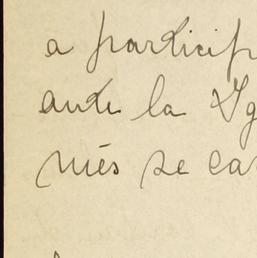 a particip
ante la Ig
nés se ca